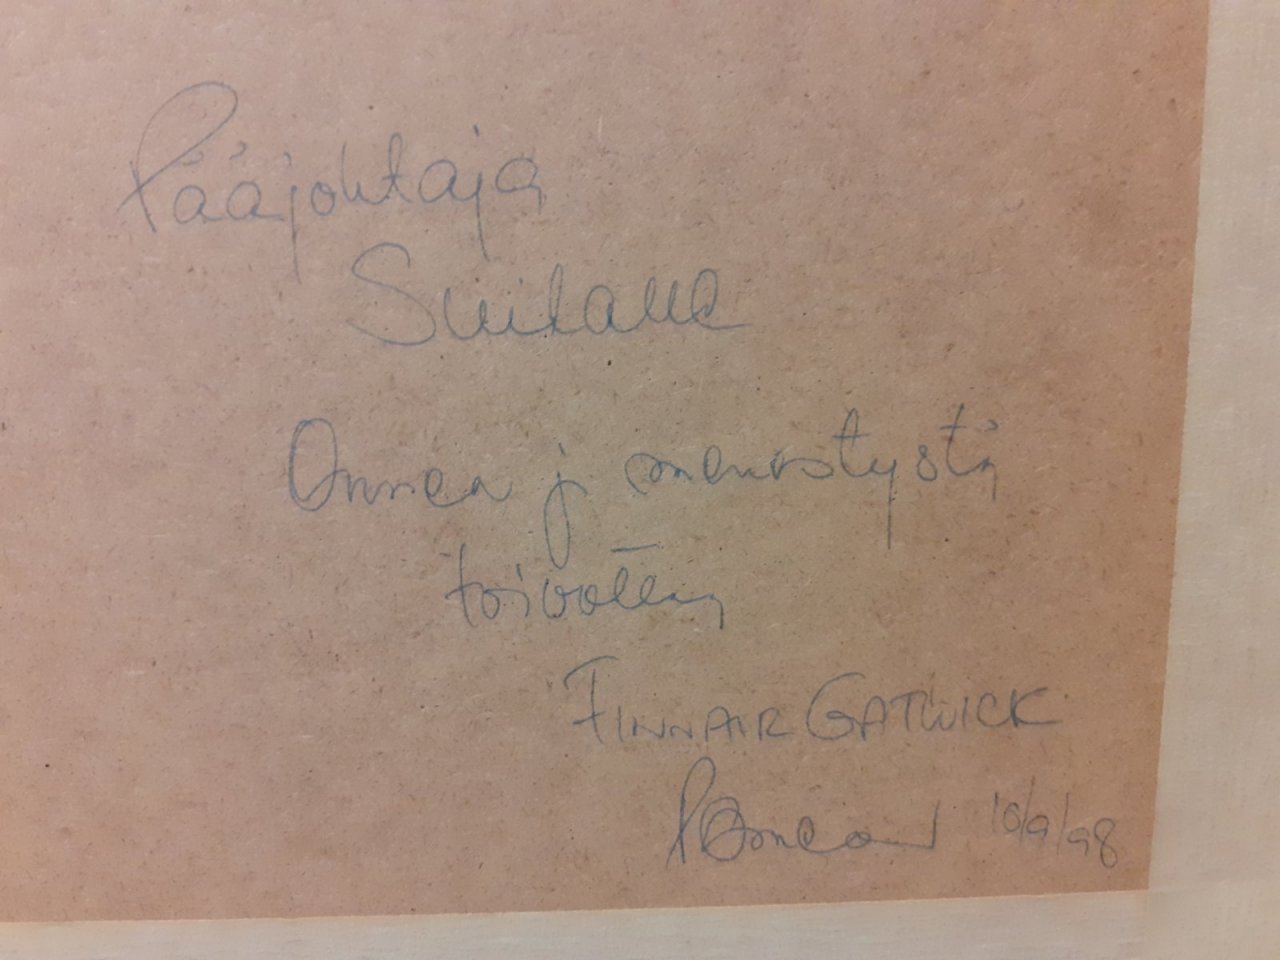 Pääjohtaja
Suilalle
Onnea ja menestystä
toivottaen
FINNAIR GATWICK
10/9/98